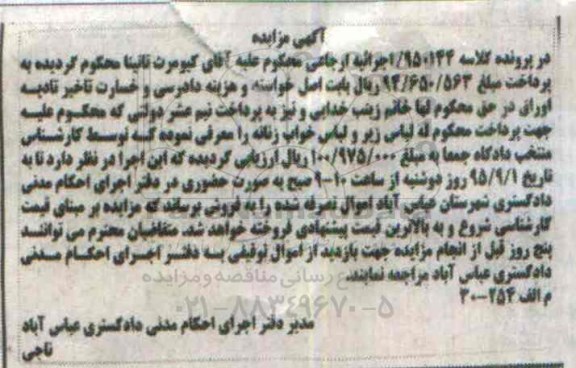 آگهی مزایده
در پرونده کلاسه ۹۵۰۱۴۴/اجرائیه ارجاعی محکوم علیه آقای کیومرث تابینا محکوم گردیده به
پرداخت مبلغ ۹۴/۶۵۰/۵۶۳ ریال بابت اصل خواسته و هزینه دادرسی و خسارت تاخیر تادیه
اوراق در حق محکوم لها خانم زینب خدایی و نیز به پرداخت نیم عشر دولتی که محکوم علیه
جهت پرداخت محکوم له لباس زیر و لباس خواب زنانه را معرفی نموده که توسط کارشناس
منتخب دادگاه جمعا به مبلغ ۱۰۰/۹۷۵/۰۰۰ ریال ارزیابی گردیده که این اجرا در نظر دارد تا به
تاریخ ۹۵/۹/۱ روز دوشنبه از ساعت ۱۰-۹ صبح به صورت حضوری در دفتر اجرای احکام مدنی
دادگستری شهرستان عباس آباد اموال تعرفه شده را به فروش برساند که مزایده بر مبنای قیمت
کارشناسی شروع و به بالاترین قیمت پیشنهادی فروخته خواهد شد. متقاضیان محترم می توانند
پنج روز قبل از انجام مزایده جهت بازدید از اموال توقیفی به دفتر اجرای احکام مدنی
دادگستری عباس آباد مراجعه نمایند.
م الف ۲۵۴-۳۰
رسانی مناقصه و مزایده
۰۲۱-۸۸۳۴۹۶۷۰-۵
مدیر دفتر اجرای احکام مدنی دادگستری عباس آباد
ناجی